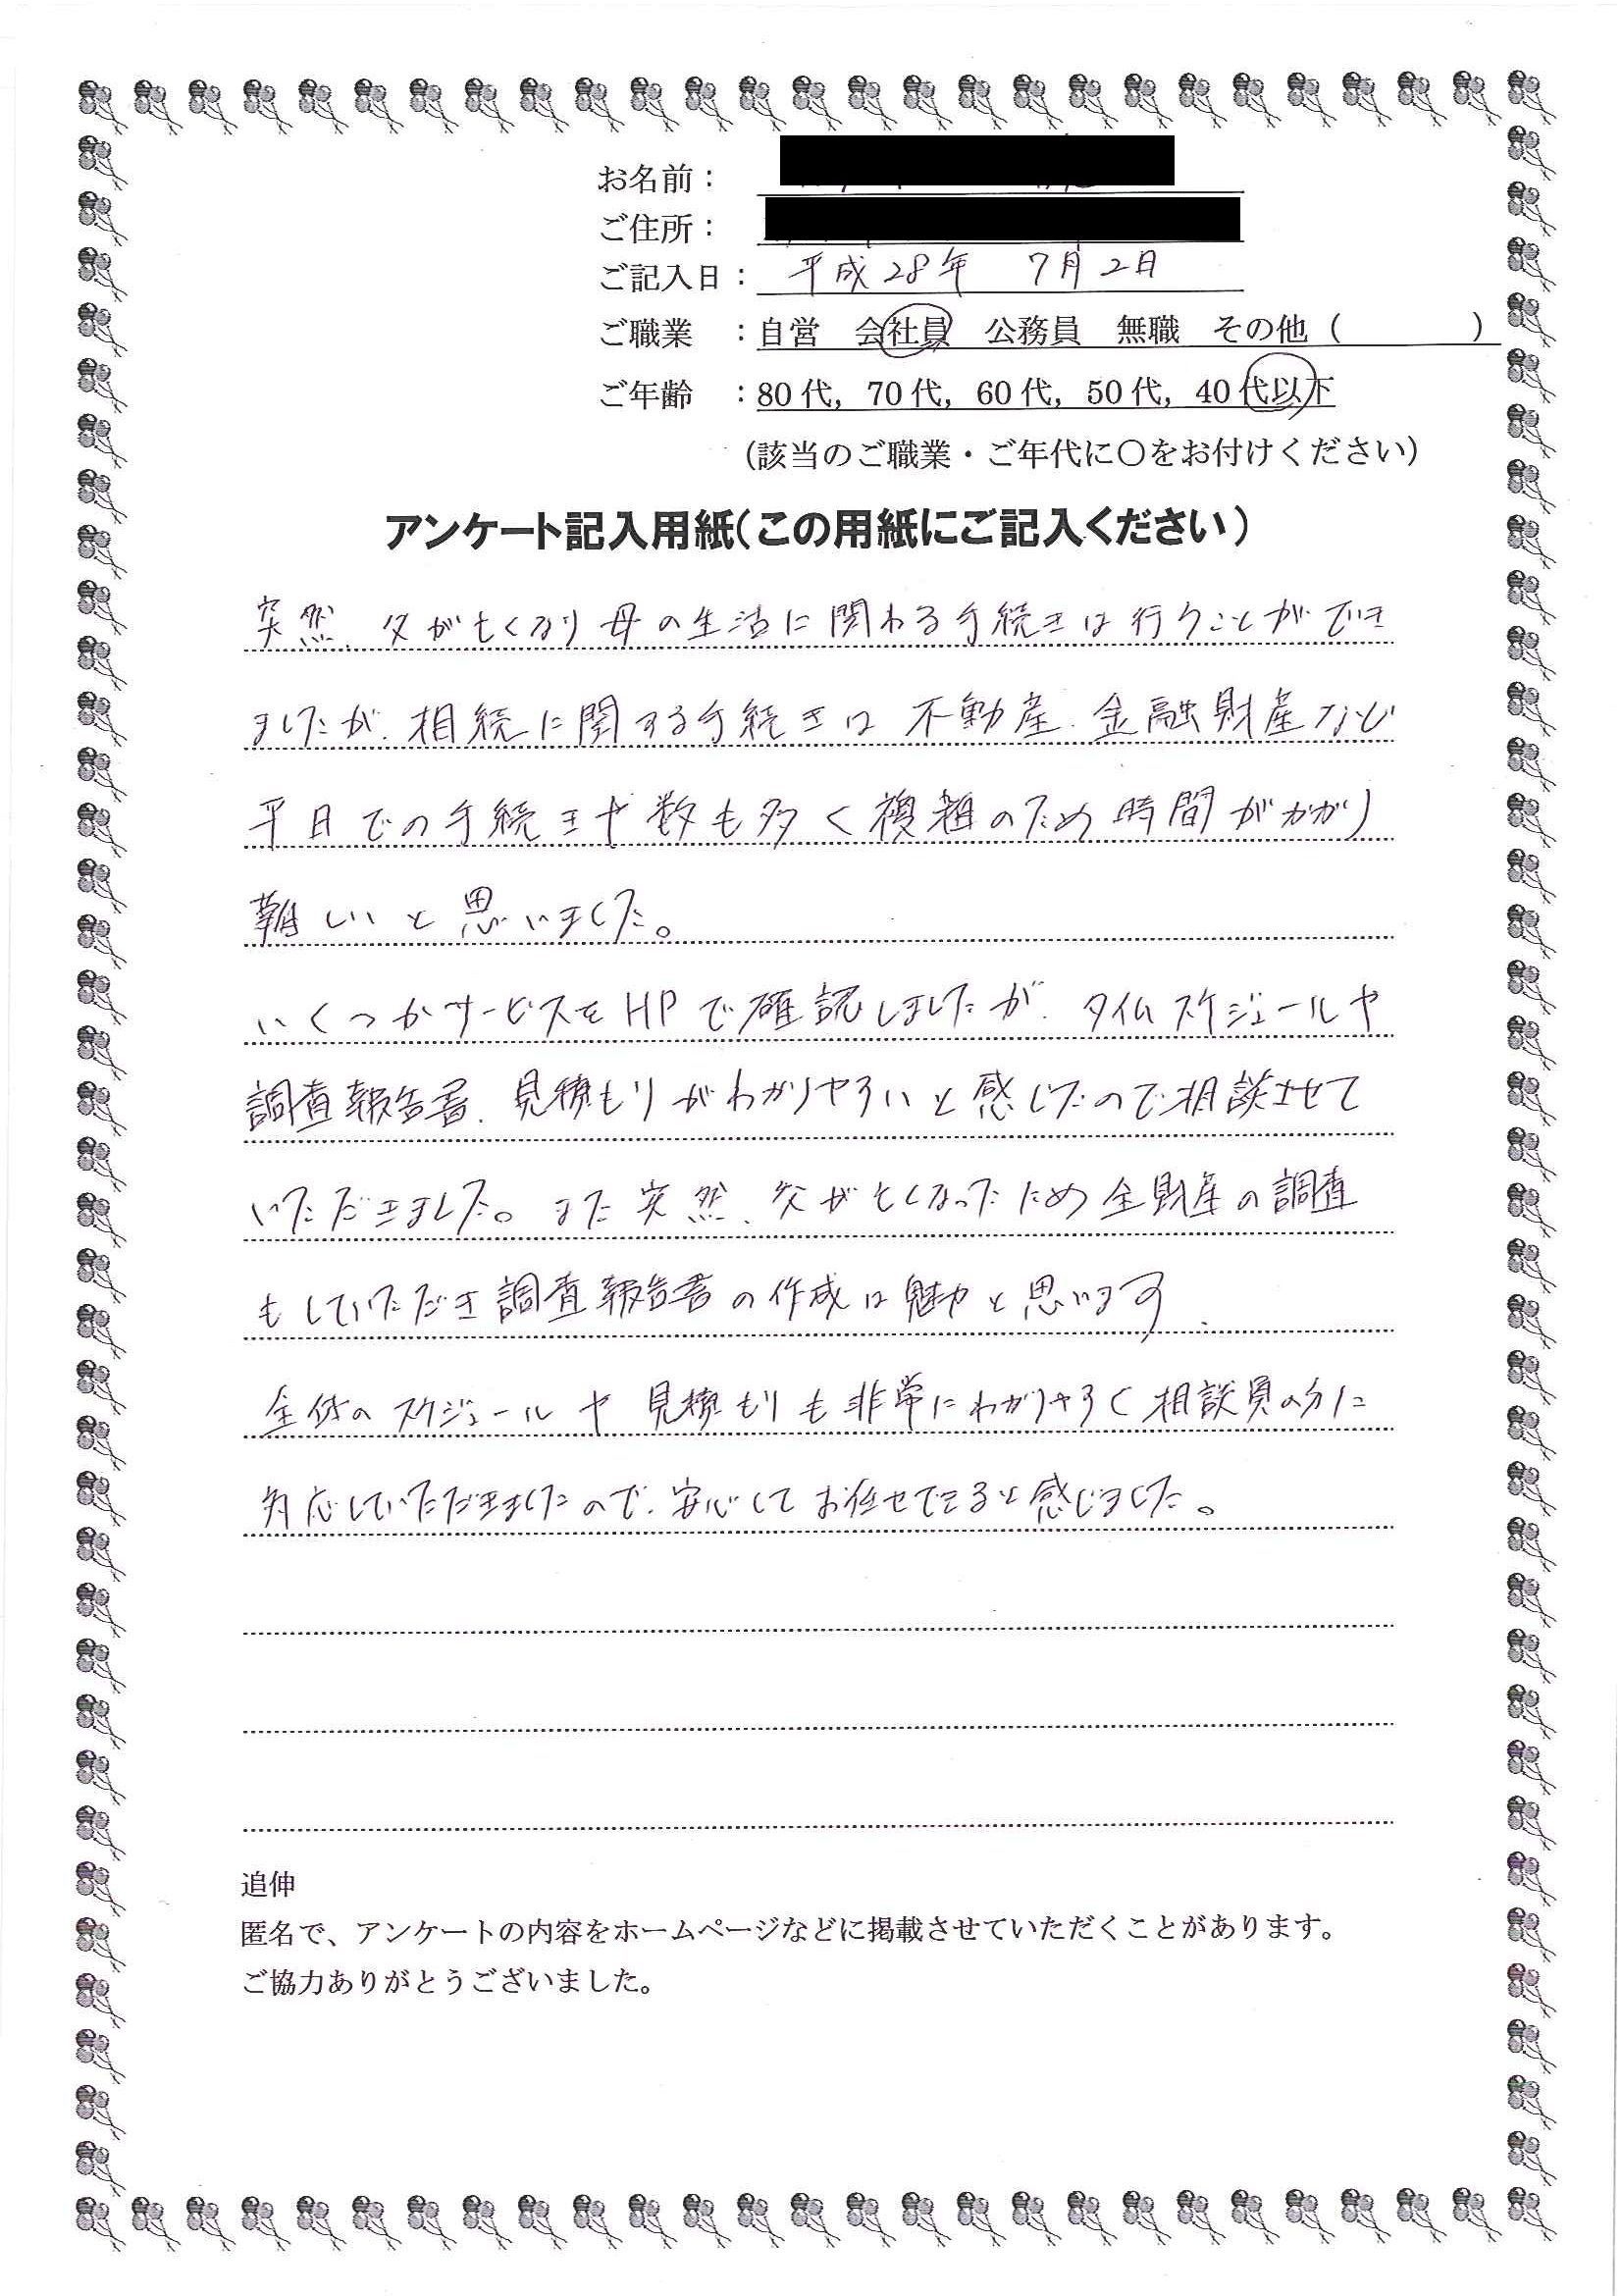 お名前：
ご住所：
ご記入日： 平成28年 7月2日
ご職業 ：自営 会社員 公務員 無職 その他（ ）
ご年齢 ：80代，70代，60代，50代，40代以下
（該当のご職業・ご年代に○をお付けください）
アンケート記入用紙（この用紙にご記入ください）
突然、父が亡くなり母の生活に関わる手続きは行うことができ
ましたが、相続に関する手続きは不動産、金融財産など
平日での手続きや数も多く複雑のため時間がかかり
難しいと思いました。
いくつかサービスをHPで確認しましたが、タイムスケジュールや
調査報告書、見積もりがわかりやすいと感じたので相談させて
いただきました。また突然、父が亡くなったため全財産の調査
もしていただき調査報告書の作成は魅力と思います．
全体のスケジュールや見積もりも非常にわかりやすく相談員の方に
対応していただきましたので、安心してお任せできると感じました。
追伸
匿名で、アンケートの内容をホームページなどに掲載させていただくことがあります。
ご協力ありがとうございました。